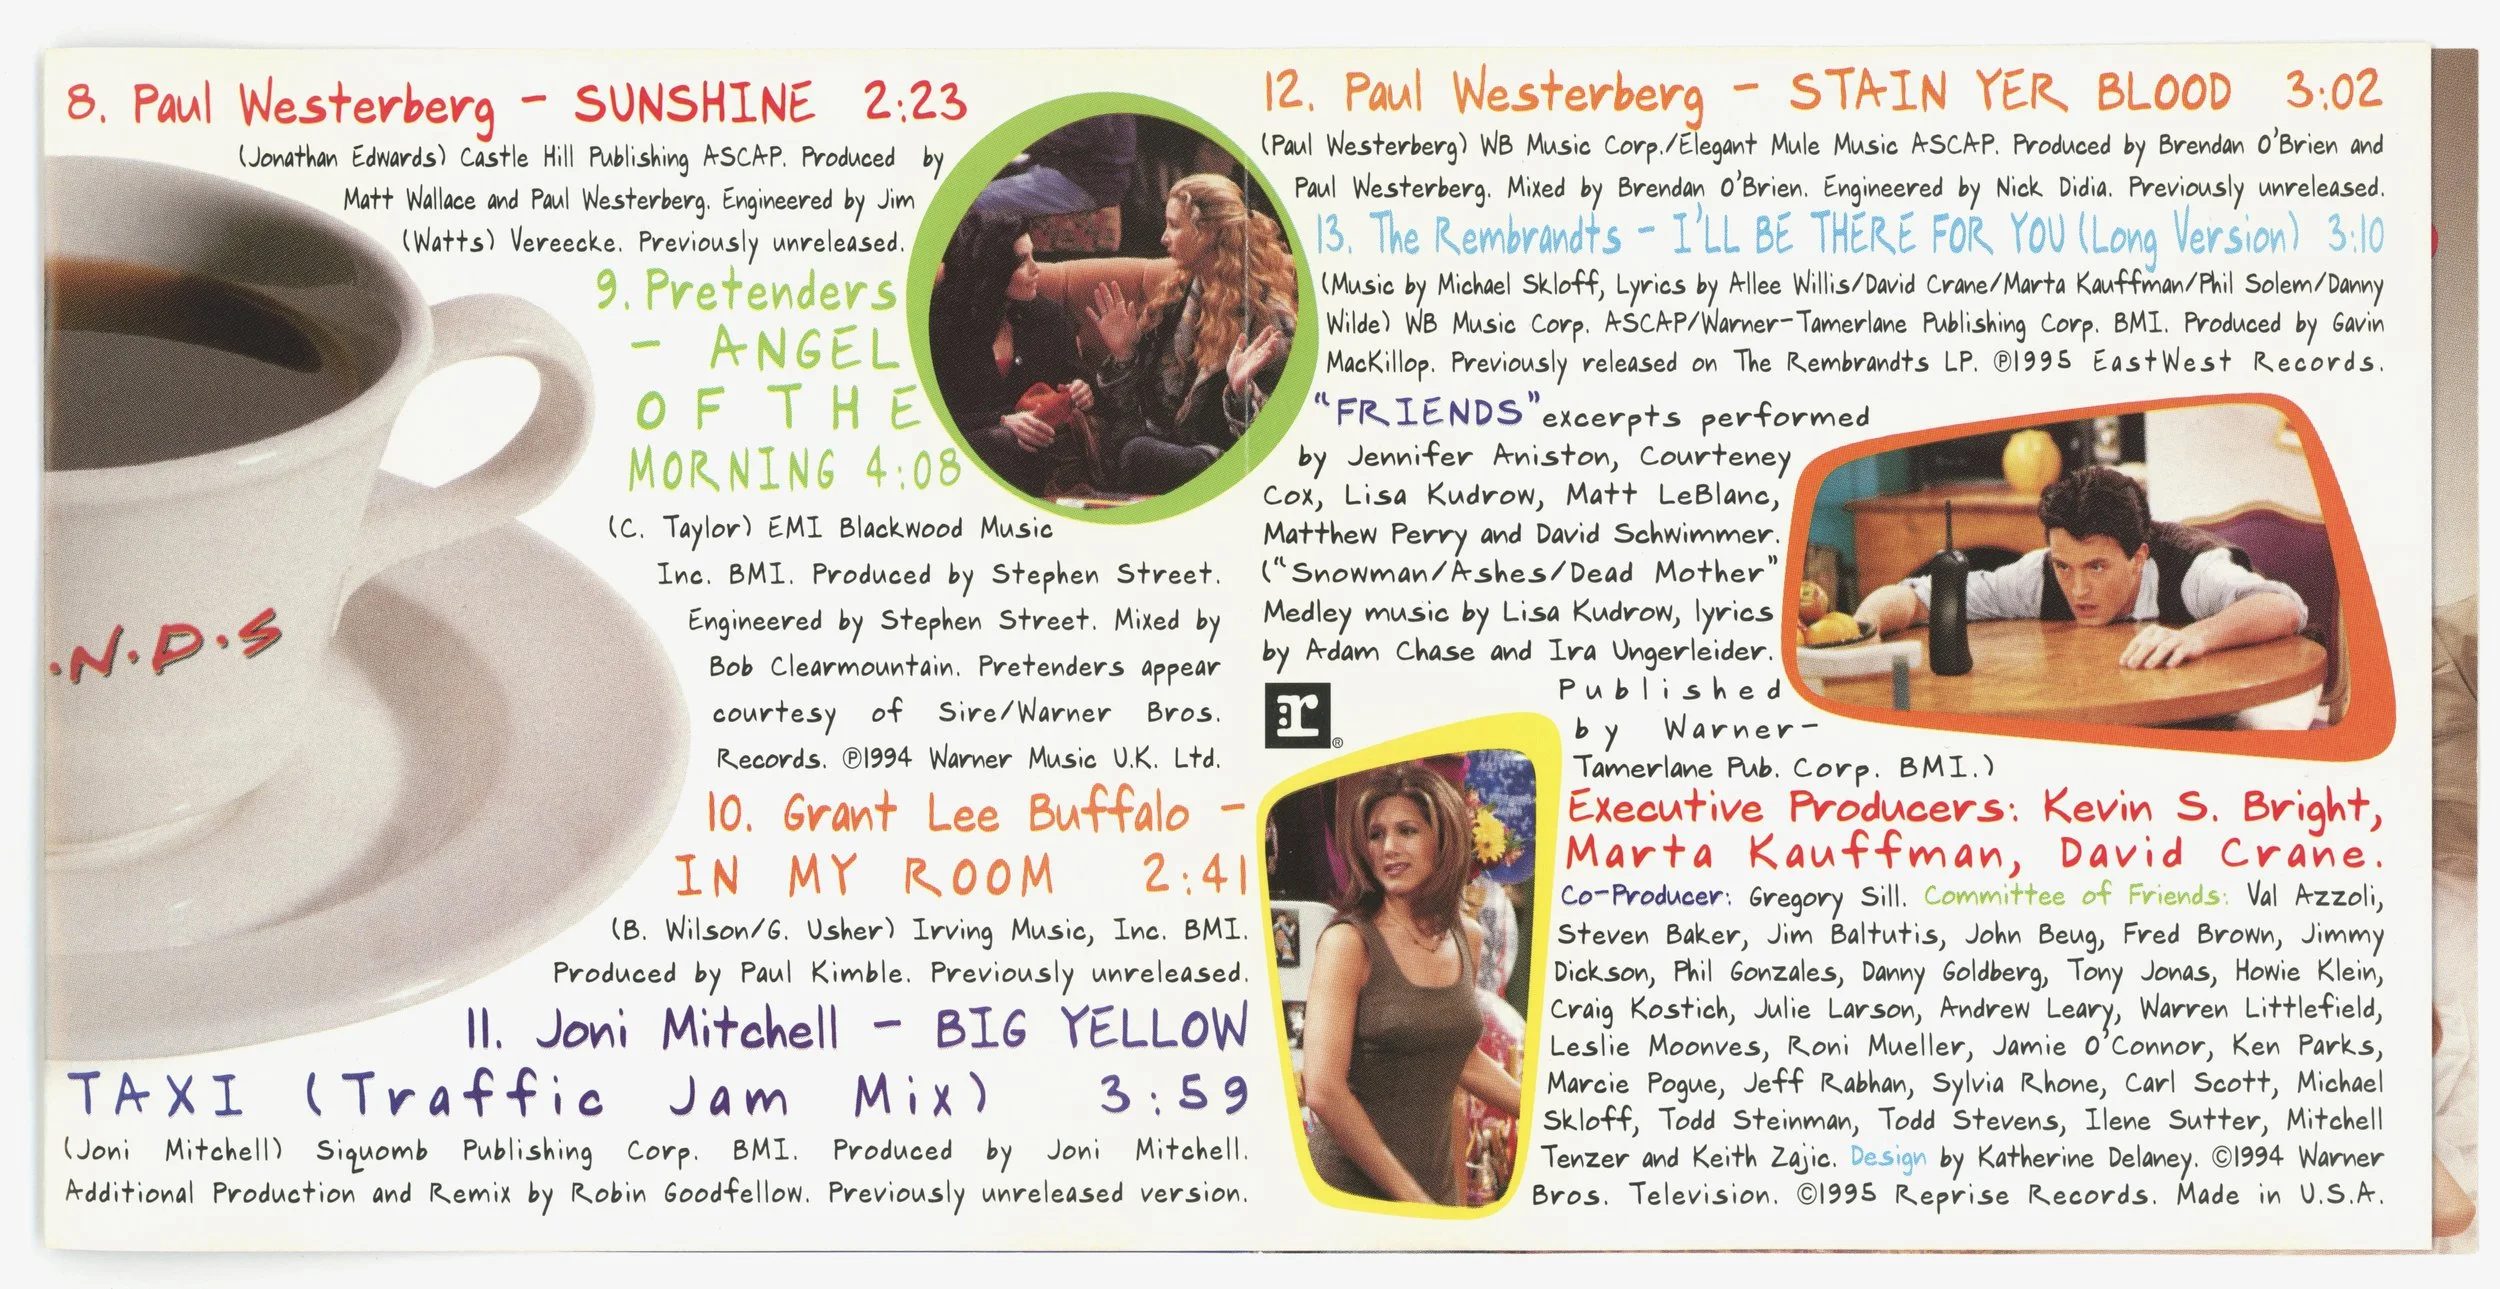 8. Paul Westerberg - SUNSHINE 2:23
(Jonathan Edwards) Castle Hill Publishing ASCAP. Produced by
Matt Wallace and Paul Westerberg. Engineered by Jim
(Watts) Vereecke. Previously unreleased.
9. Pretenders
- ANGEL
OF THE
MORNING 4:08
(C. Taylor) EMI Blackwood Music
Inc. BMI. Produced by Stephen Street.
Engineered by Stephen Street. Mixed by
Bob Clearmountain. Pretenders appear
courtesy of Sire/Warner Bros.
Records. ℗1994 Warner Music U.K. Ltd.
10. Grant Lee Buffalo -
IN MY ROOM 2:41
(B. Wilson/G. Usher) Irving Music, Inc. BMI.
Produced by Paul Kimble. Previously unreleased.
11. Joni Mitchell - BIG YELLOW
TAXI (Traffic Jam Mix) 3:59
(Joni Mitchell) Siquomb Publishing Corp. BMI. Produced by Joni Mitchell.
Additional Production and Remix by Robin Goodfellow. Previously unreleased version.
·N·D·S
12. Paul Westerberg - STAIN YER BLOOD 3:02
(Paul Westerberg) WB Music Corp./Elegant Mule Music ASCAP. Produced by Brendan O'Brien and
Paul Westerberg. Mixed by Brendan O'Brien. Engineered by Nick Didia. Previously unreleased.
13. The Rembrandts - I'LL BE THERE FOR YOU (Long Version) 3:10
(Music by Michael Skloff, Lyrics by Allee Willis/David Crane/Marta Kauffman/Phil Solem/Danny
Wilde) WB Music Corp. ASCAP/Warner-Tamerlane Publishing Corp. BMI. Produced by Gavin
MacKillop. Previously released on The Rembrandts LP. ℗1995 EastWest Records.
"FRIENDS" excerpts performed
by Jennifer Aniston, Courteney
Cox, Lisa Kudrow, Matt LeBlanc,
Matthew Perry and David Schwimmer.
("Snowman/Ashes/Dead Mother"
Medley music by Lisa Kudrow, lyrics
by Adam Chase and Ira Ungerleider.
Published
by Warner-
Tamerlane Pub. Corp. BMI.)
r®
Executive Producers: Kevin S. Bright,
Marta Kauffman, David Crane.
Co-Producer: Gregory Sill. Committee of Friends: Val Azzoli,
Steven Baker, Jim Baltutis, John Beug, Fred Brown, Jimmy
Dickson, Phil Gonzales, Danny Goldberg, Tony Jonas, Howie Klein,
Craig Kostich, Julie Larson, Andrew Leary, Warren Littlefield,
Leslie Moonves, Roni Mueller, Jamie O'Connor, Ken Parks,
Marcie Pogue, Jeff Rabhan, Sylvia Rhone, Carl Scott, Michael
Skloff, Todd Steinman, Todd Stevens, Ilene Sutter, Mitchell
Tenzer and Keith Zajic. Design by Katherine Delaney. ©1994 Warner
Bros. Television. ©1995 Reprise Records. Made in U.S.A.